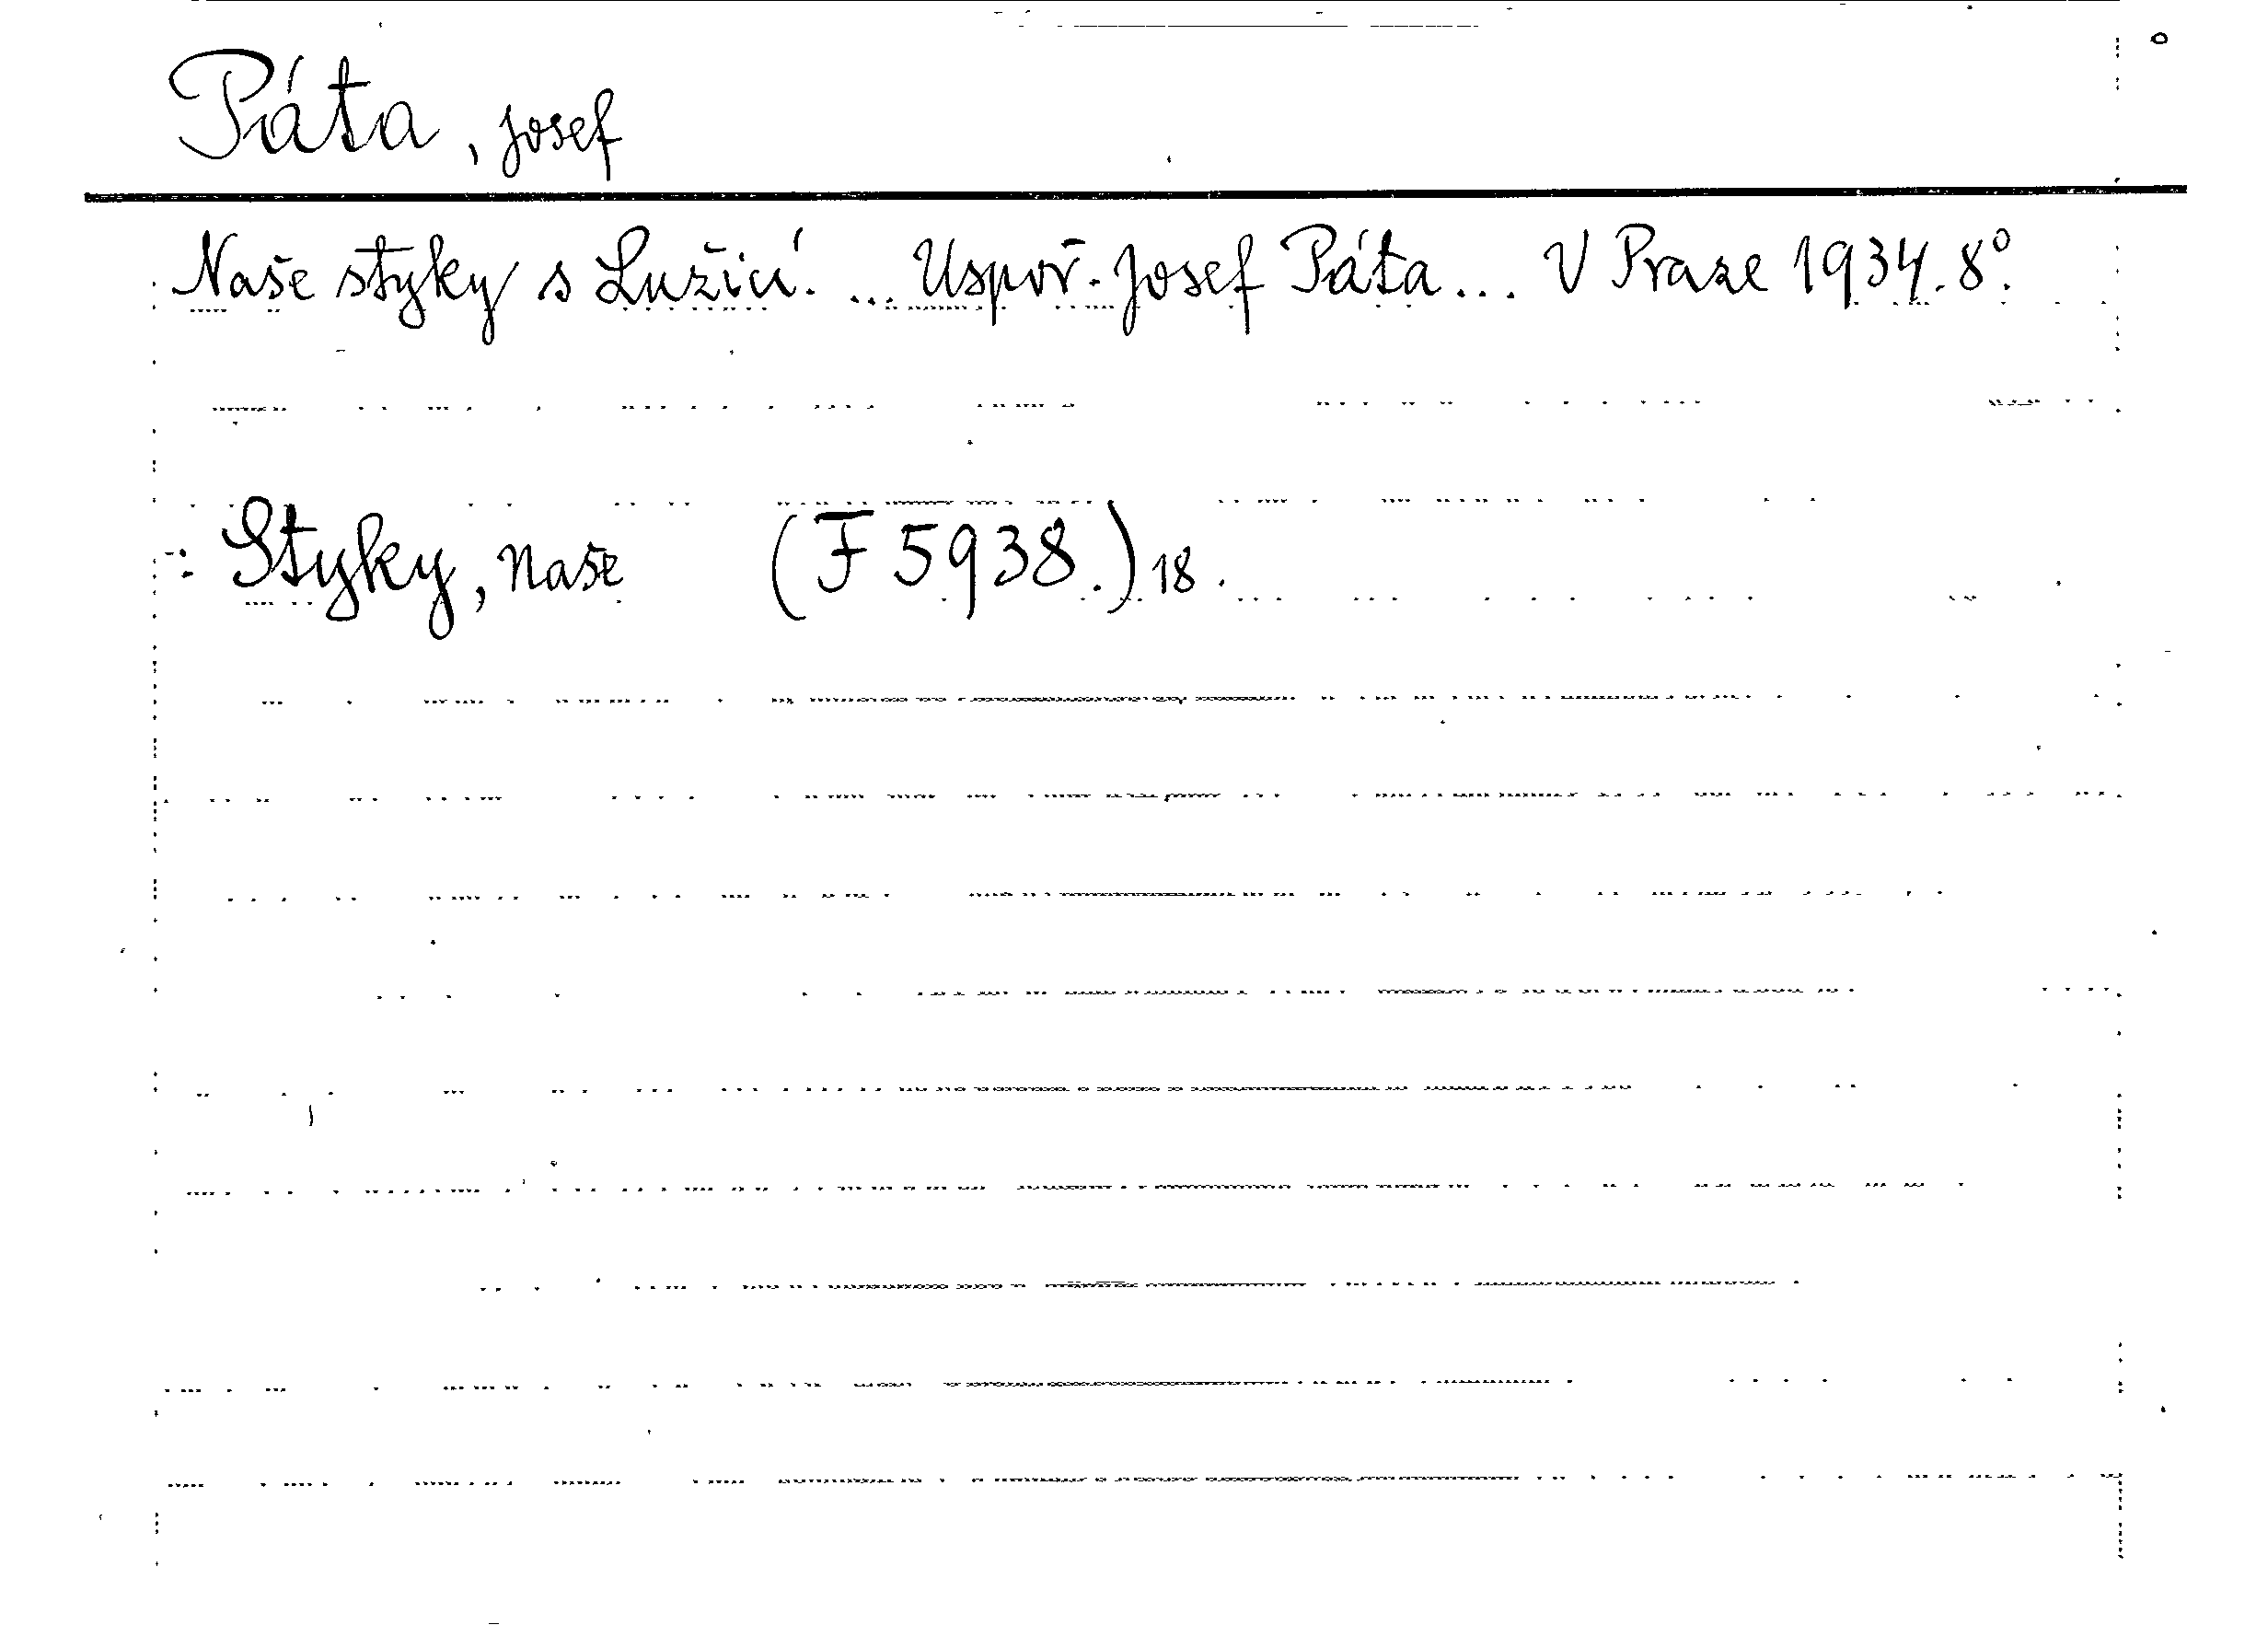 Páta, Josef
Naše styky s Lužicí. ... Uspoř. Josef Páta... V Praze 1934. 8°.
-: Styky, Naše (F 5938.) 18.